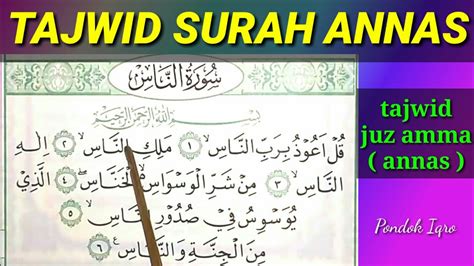 TAJWID SURAH ANNAS
سُورَةُ النَّاسِ
بِسْمِ اللَّهِ الرَّحْمَٰنِ الرَّحِيمِ
قُلْ أَعُوذُ بِرَبِّ النَّاسِ ١ مَلِكِ النَّاسِ ٢ إِلَٰهِ
النَّاسِ ٣ مِنْ شَرِّ الْوَسْوَاسِ الْخَنَّاسِ ٤ الَّذِي
يُوَسْوِسُ فِي صُدُورِ النَّاسِ ٥
مِنَ الْجِنَّةِ وَالنَّاسِ ٦
tajwid
juz amma
( annas )
Pondok Iqro